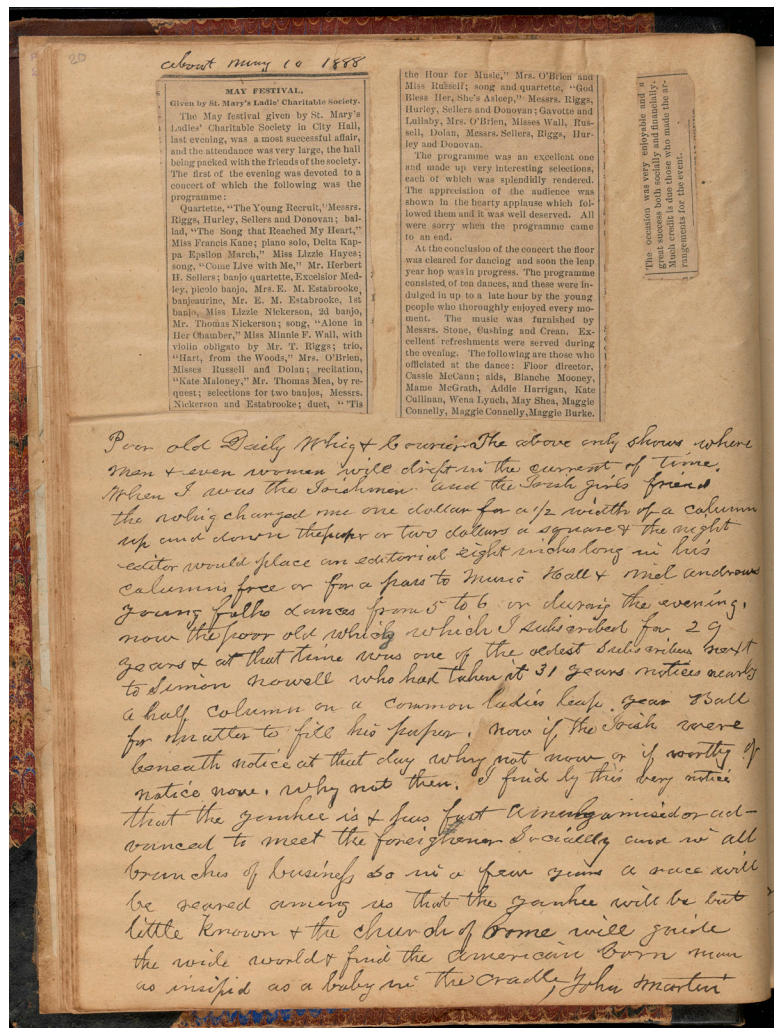 20
about may 10 1888
MAY FESTIVAL.
Given by St. Mary's Ladie' Charitable Society.
The May festival given by St. Mary's
Ladies' Charitable Society in City Hall,
last evening, was a most successful affair,
and the attendance was very large, the hall
being packed with the friends of the society.
The first of the evening was devoted to a
concert of which the following was the
programme:
Quartette, "The Young Recruit," Messrs.
Riggs, Hurley, Sellers and Donovan; bal-
lad, "The Song that Reached My Heart,"
Miss Francis Kane; piano solo, Delta Kap-
pa Epsilon March," Miss Lizzie Hayes;
song, "Come Live with Me," Mr. Herbert
H. Sellers; banjo quartette, Excelsior Med-
ley, picolo banjo, Mrs. E. M. Estabrooke,
banjeaurine, Mr. E. M. Estabrooke, 1st
banjo, Miss Lizzie Nickerson, 2d banjo,
Mr. Thomas Nickerson; song, "Alone in
Her Chamber," Miss Minnie F. Wall, with
violin obligato by Mr. T. Riggs; trio,
"Hart, from the Woods," Mrs. O'Brien,
Misses Russell and Dolan; recitation,
"Kate Maloney," Mr. Thomas Mea, by re-
quest; selections for two banjos, Messrs.
Nickerson and Estabrooke; duet, "'Tis
the Hour for Music," Mrs. O'Brien and
Miss Russell; song and quartette, "God
Bless Her, She's Asleep," Messrs. Riggs,
Hurley, Sellers and Donovan; Gavotte and
Lullaby, Mrs. O'Brien, Misses Wall, Rus-
sell, Dolan, Messrs. Sellers, Riggs, Hur-
ley and Donovan.
The programme was an excellent one
and made up very interesting selections,
each of which was splendidly rendered.
The appreciation of the audience was
shown in the hearty applause which fol-
lowed them and it was well deserved. All
were sorry when the programme came
to an end.
At the conclusion of the concert the floor
was cleared for dancing and soon the leap
year hop was in progress. The programme
consisted of ten dances, and these were in-
dulged in up to a late hour by the young
people who thoroughly enjoyed every mo-
ment. The music was furnished by
Messrs. Stone, Cushing and Crean. Ex-
cellent refreshments were served during
the evening. The following are those who
officiated at the dance: Floor director,
Cassie McCann; aids, Blanche Mooney,
Mame McGrath, Addie Harrigan, Kate
Cullinan, Wena Lynch, May Shea, Maggie
Connelly, Maggie Connelly, Maggie Burke.
The occasion was very enjoyable and a
great success both socially and financially.
Much credit is due those who made the ar-
rangements for the event.
Poor old Daily Whig & Courier. The above only shows where
men & even women will drift in the current of time.
When I was the Irishmen and the Irish girls friend
the whig charged me one dollar for a 1/2 width of a column
up and down the paper or two dollars a square & the night
editor would place an editorial eight inches long in his
columns free or for a pass to Music Hall & miel andrews
young folks dances from 5 to 6 or during the evening.
now the poor old which which I subscribed for 29
years & at that time was one of the oldest subscribers next
to Simon nowell who had taken it 31 years notices nearly
a half column on a common ladies leap year Ball
for matter to fill his paper. now if the Irish were
beneath notice at that day why not now or if worthy of
notice now. why not then. I find by this very notice
that the yankee is & has fast amalgamised or ad-
vanced to meet the foreighener Socially and in all
branches of business so in a few years a race will
be reared among us that the yankee will be but
little known & the church of rome will guide
the wide world & find the american born man
as insipid as a baby in the cradle, John martin